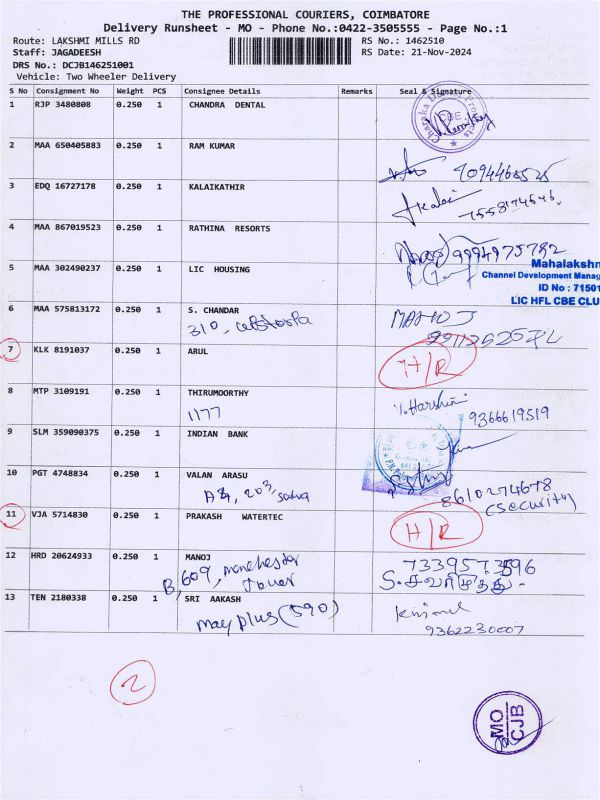 THE PROFESSIONAL COURIERS, COIMBATORE
Delivery Runsheet - MO - Phone No.:0422-3505555 - Page No.:1
Route: LAKSHMI MILLS RD RS No.: 1462510
Staff: JAGADEESH RS Date: 21-Nov-2024
DRS No.: DCJB146251001
Vehicle: Two Wheeler Delivery
S No Consignment No Weight PCS Consignee Details Remarks Seal & Signature
1 RJP 3480808 0.250 1 CHANDRA DENTAL
CBE
2 MAA 650405883 0.250 1 RAM KUMAR
3 EDQ 16727178 0.250 1 KALAIKATHIR
4 MAA 867019523 0.250 1 RATHINA RESORTS
5 MAA 302490237 0.250 1 LIC HOUSING
Mahalakshm
Channel Development Manag
ID No : 71501
LIC HFL CBE CLU
6 MAA 575813172 0.250 1 S. CHANDAR
310,
MANOJ
7 KLK 8191037 0.250 1 ARUL
H/R
8 MTP 3109191 0.250 1 THIRUMOORTHY
1177
V. Harshini
9366619519
9 SLM 359090375 0.250 1 INDIAN BANK
10 PGT 4748834 0.250 1 VALAN ARASU
203,
8610274678
(Security)
11 VJA 5714830 0.250 1 PRAKASH WATERTEC
H/R
12 HRD 20624933 0.250 1 MANOJ
B, 609, manchester
tower
13 TEN 2180338 0.250 1 SRI AAKASH
may plus (590)
9362230007
2
MO
CJB